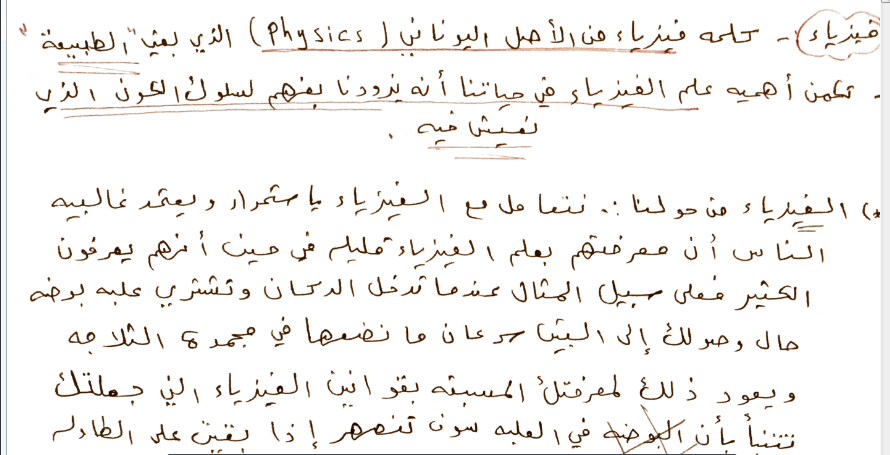 فيزياء :- كلمه فيزياء من الأصل اليوناني (Physics) الذي يعني "الطبيعة"
- تكمن أهميه علم الفيزياء في حياتنا أنه يزودنا بفهم لسلوك الكون الذي
نعيش فيه .
*) الفيزياء من حولنا :. نتعامل مع الفيزياء باستمرار ويعتقد غالبيه
الناس أن معرفتهم بعلم الفيزياء قليله في حين أنهم يعرفون
الكثير فعلى سبيل المثال عندما تدخل الدكان وتشتري علبه بوضه
حال وصولك إلى البيت سرعان ما نضعها في مجمدة الثلاجه
ويعود ذلك لمعرفتك المسبقه بقوانين الفيزياء التي جعلتك
تتنبأ بأن البوضه في العلبه سوف تنصهر إذا بقيت على الطاوله